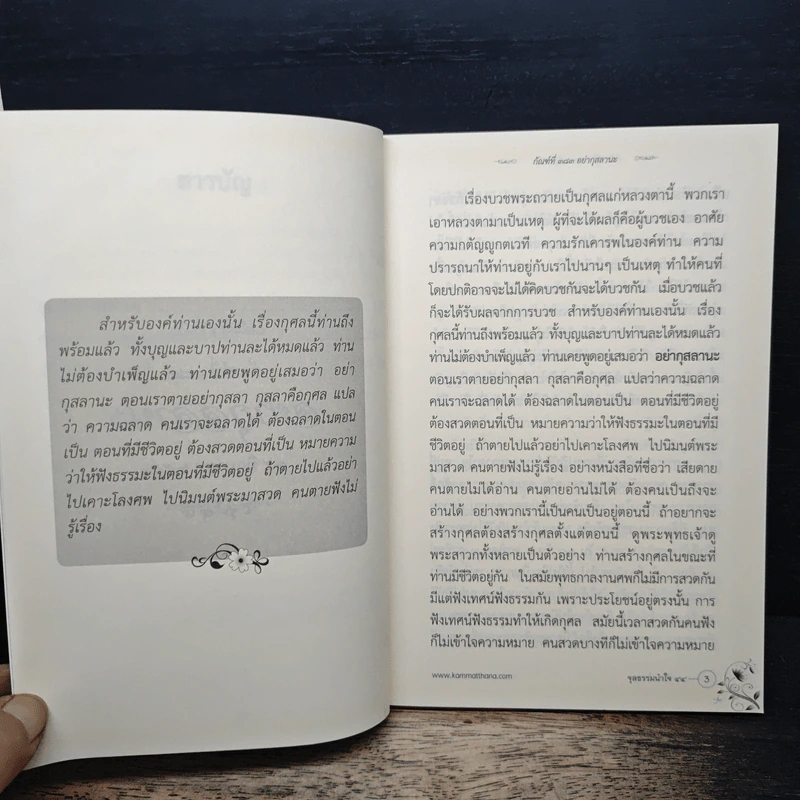 สำหรับองค์ท่านเองนั้น เรื่องกุศลนี้ท่านถึง
พร้อมแล้ว ทั้งบุญและบาปท่านละได้หมดแล้ว ท่าน
ไม่ต้องบำเพ็ญแล้ว ท่านเคยพูดอยู่เสมอว่า อย่า
กุสลานะ ตอนเราตายอย่ากุสลา กุสลาคือกุศล แปล
ว่า ความฉลาด คนเราจะฉลาดได้ ต้องฉลาดในตอน
เป็น ตอนที่มีชีวิตอยู่ ต้องสวดตอนที่เป็น หมายความ
ว่าให้ฟังธรรมะในตอนที่มีชีวิตอยู่ ถ้าตายไปแล้วอย่า
ไปเคาะโลงศพ ไปนิมนต์พระมาสวด คนตายฟังไม่
รู้เรื่อง
กัณฑ์ที่ ๓๘๓ อย่ากุสลานะ
เรื่องบวชพระถวายเป็นกุศลแก่หลวงตานี้ พวกเรา
เอาหลวงตามาเป็นเหตุ ผู้ที่จะได้ผลก็คือผู้บวชเอง อาศัย
ความกตัญญูกตเวที ความรักเคารพในองค์ท่าน ความ
ปรารถนาให้ท่านอยู่กับเราไปนานๆ เป็นเหตุ ทำให้คนที่
โดยปกติอาจจะไม่ได้คิดบวชกันจะได้บวชกัน เมื่อบวชแล้ว
ก็จะได้รับผลจากการบวช สำหรับองค์ท่านเองนั้น เรื่อง
กุศลนี้ท่านถึงพร้อมแล้ว ทั้งบุญและบาปท่านละได้หมดแล้ว
ท่านไม่ต้องบำเพ็ญแล้ว ท่านเคยพูดอยู่เสมอว่า อย่ากุสลานะ
ตอนเราตายอย่ากุสลา กุสลาคือกุศล แปลว่าความฉลาด
คนเราจะฉลาดได้ ต้องฉลาดในตอนเป็น ตอนที่มีชีวิตอยู่
ต้องสวดตอนที่เป็น หมายความว่าให้ฟังธรรมะในตอนที่มี
ชีวิตอยู่ ถ้าตายไปแล้วอย่าไปเคาะโลงศพ ไปนิมนต์พระ
มาสวด คนตายฟังไม่รู้เรื่อง อย่างหนังสือที่ชื่อว่า เสียดาย
คนตายไม่ได้อ่าน คนตายอ่านไม่ได้ ต้องคนเป็นถึงจะ
อ่านได้ อย่างพวกเรานี้เป็นคนเป็นอยู่ตอนนี้ ถ้าอยากจะ
สร้างกุศลต้องสร้างกุศลตั้งแต่ตอนนี้ ดูพระพุทธเจ้าดู
พระสาวกทั้งหลายเป็นตัวอย่าง ท่านสร้างกุศลในขณะที่
ท่านมีชีวิตอยู่กัน ในสมัยพุทธกาลงานศพก็ไม่มีการสวดกัน
มีแต่ฟังเทศน์ฟังธรรมกัน เพราะประโยชน์อยู่ตรงนั้น การ
ฟังเทศน์ฟังธรรมทำให้เกิดกุศล สมัยนี้เวลาสวดกันคนฟัง
ก็ไม่เข้าใจความหมาย คนสวดบางทีก็ไม่เข้าใจความหมาย
www.kammatthana.com
จุลธรรมนำใจ ๔๔ 3